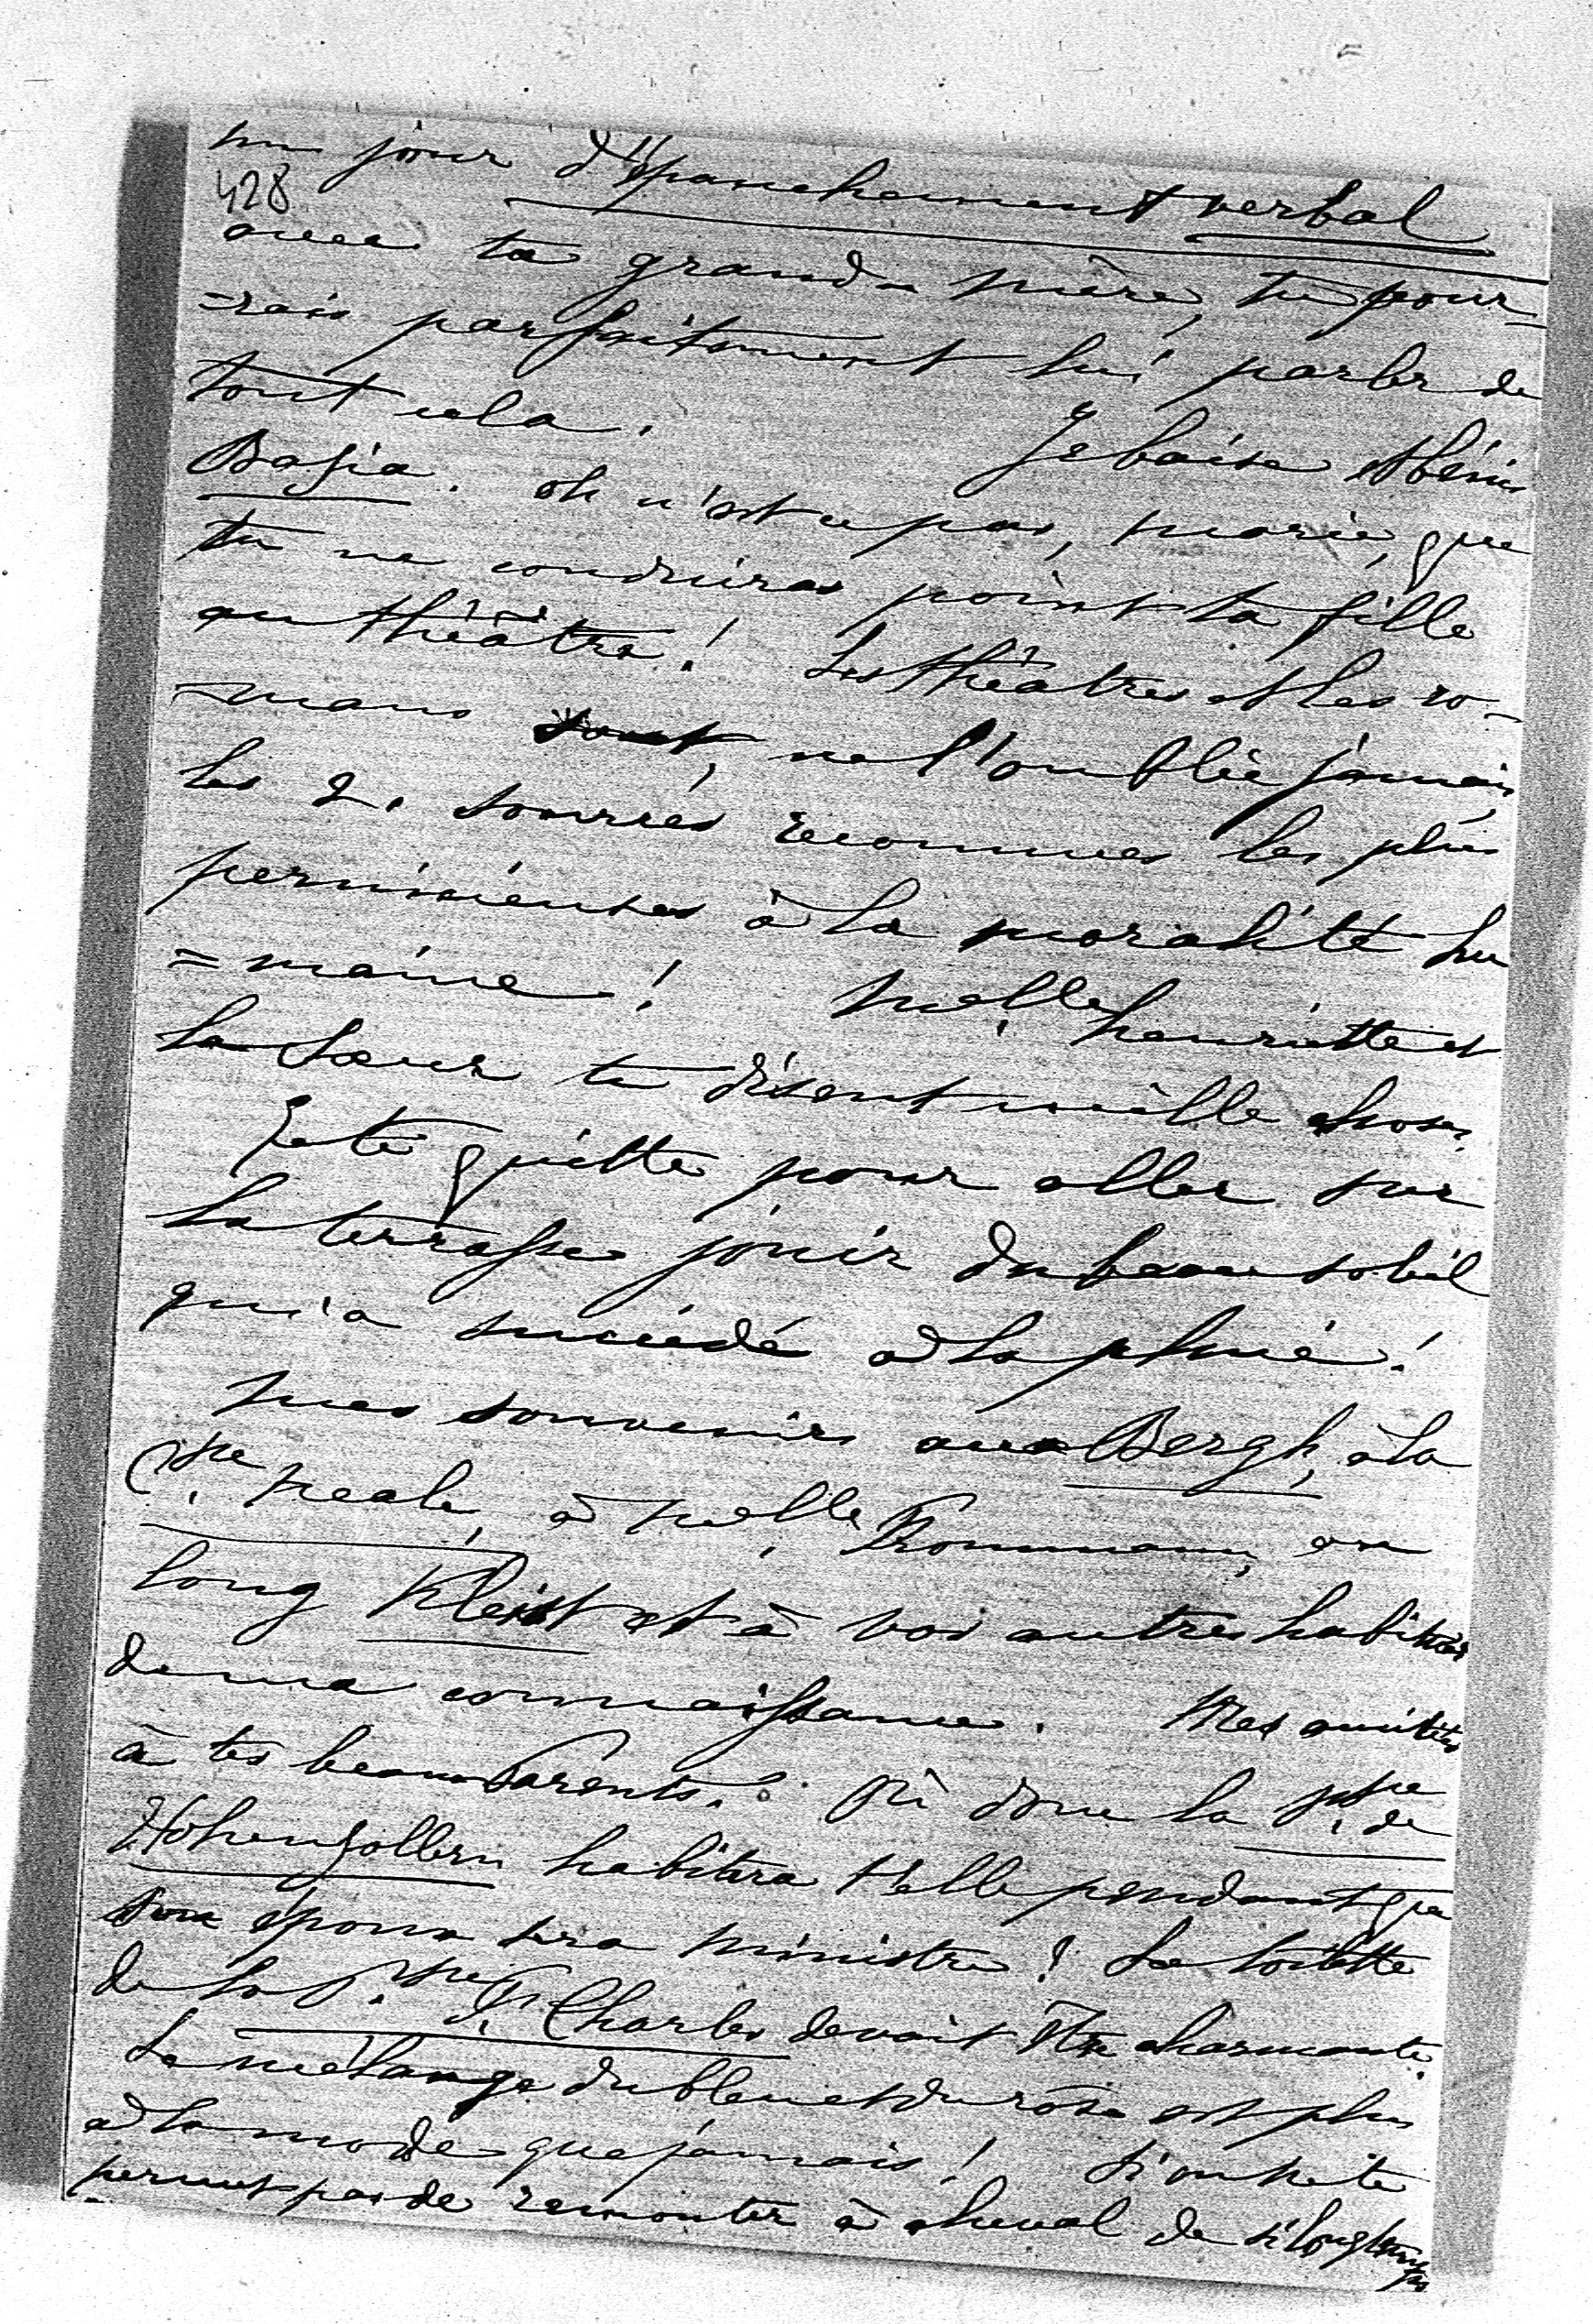 un jour d'épanchement verbal
428
avec ta grand-mère, tu pour-
=rais parfaitement lui parler de
tout cela. Je baise et bénis
Basia. oh n'est ce pas, marie, que
tu ne conduiras point ta fille
au théâtre! Les théâtres et les ro-
=mans sont, ne l'oublie jamais,
les 2. sources reconnues les plus
pernicieuses à la moralité hu
=maine! Melle henriette et
la Sœur te disent mille choses.
Je te quitte pour aller sur
la terrasse jouir du beau soleil
qui a succédé à la pluie!
mes souvenirs aux Bergh, à la
Ctsse neale, à Melle Trommann, au
long Kleist et à vos autres habitués
de ma connaissance. Mes amitiés
à tes beaux Parents. Où donc la Psse de
Hohenzollern habitera t'elle pendant que
son époux sera ministre? La toilette
de la Psse Fr. Charles devait être charmante.
Le mélange du bleu et du rose est plus
à la mode que jamais! Si on ne te
permet pas de remonter à cheval de si longtemps